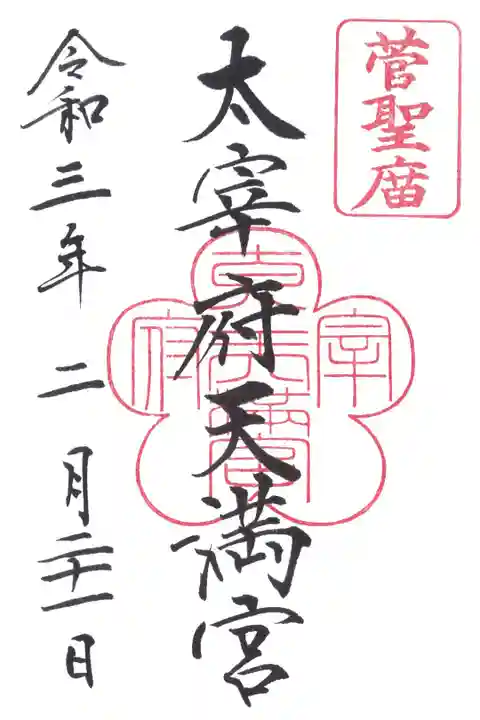 菅聖庿
太宰府天満宮
令和三年二月二十一日